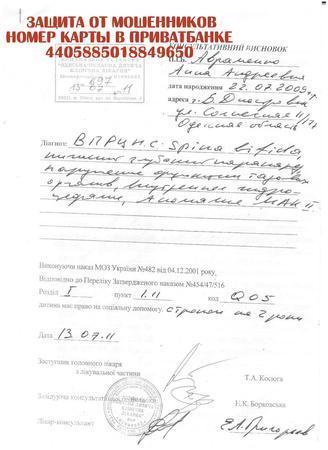 ЗАЩИТА ОТ МОШЕННИКОВ
НОМЕР КАРТЫ В ПРИВАТБАНКЕ
4405885018849650
КОНСУЛЬТАТИВНИЙ ВИСНОВОК
П.І.Б. Авраменко
Анна Андреевна
дата народження 22.07.2009г.
адреса
Одесская область
13-07-11
Діагноз: ВПР Ц.Н.С. Spina bifida
нижний глубокий парапарез
нарушение функции тазовых
органов, внутренняя гидро-
цефалия, Аномалия
Виконуючи наказ МОЗ України №482 від 04.12.2001 року,
Відповідно до Переліку Затвердженого наказом №454/47/516
Розділ I пункт 1.11 код Q05
дитина має право на соціальну допомогу. строком на 2 роки
Дата 13.07.11
Заступник головного лікаря
з лікувальної частини
Т.А. Косюга
Н.К. Борковська
Лікар-консультант